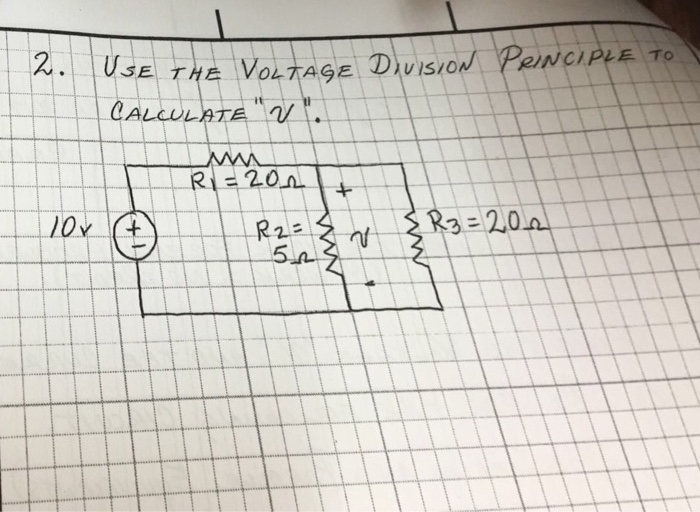 2. USE THE VOLTAGE DIVISION PRINCIPLE TO
CALCULATE "V".
R1=20Ω
+
10V
+
-
R2=
5Ω
V
R3=20Ω
-